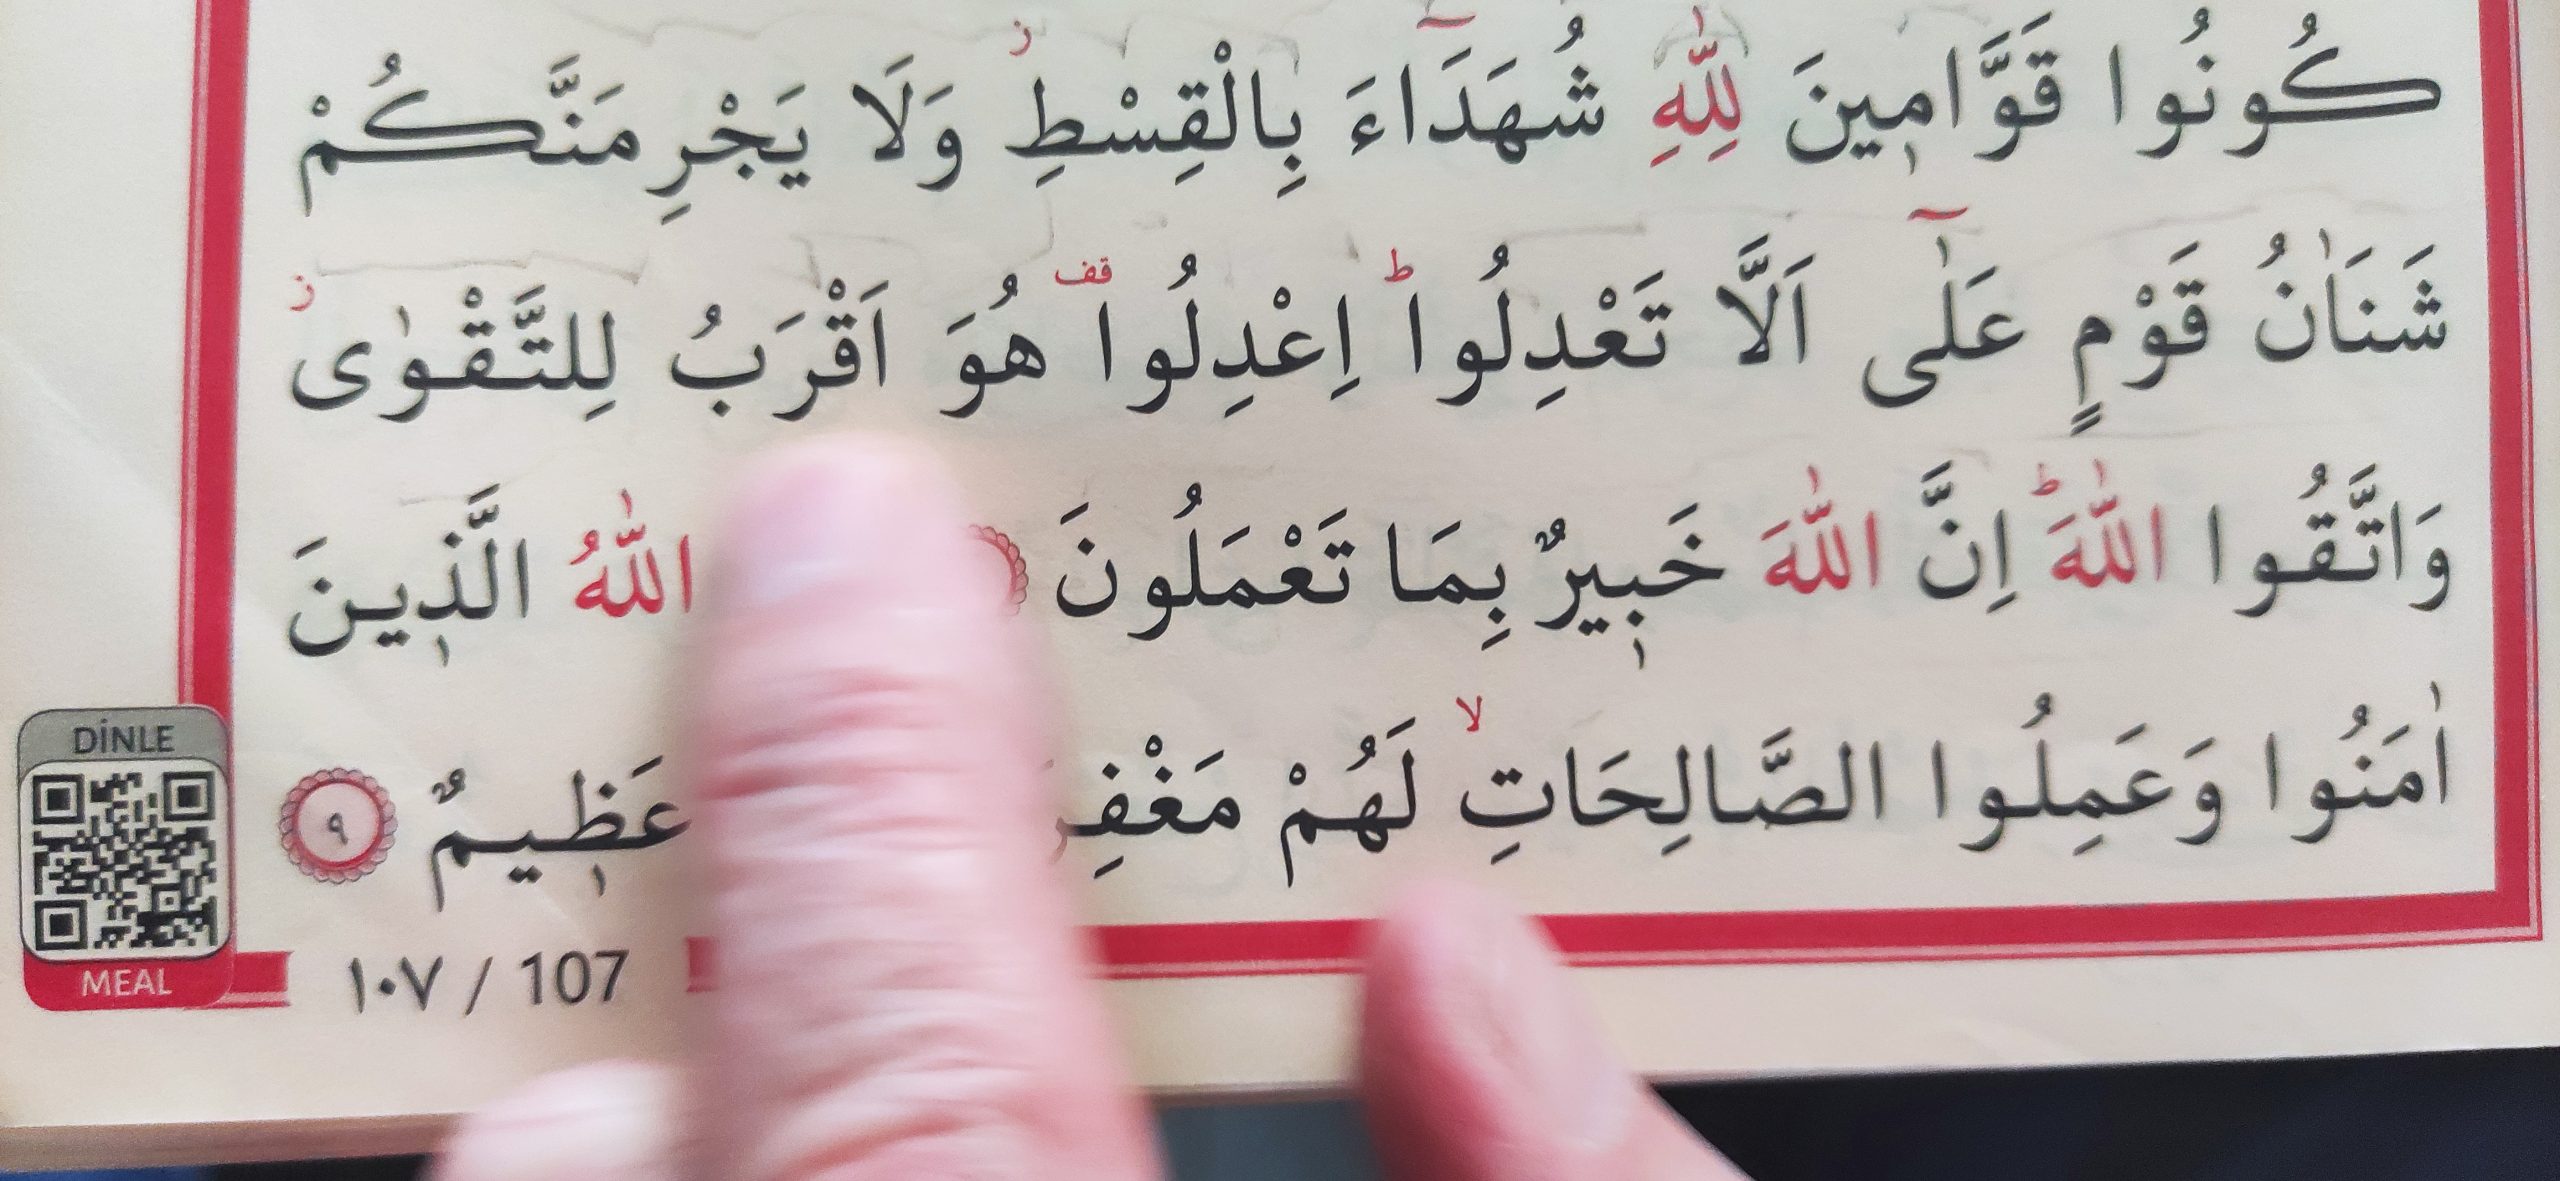 كُونُوا قَوَّامٖينَ لِلّٰهِ شُهَدَٓاءَ بِالْقِسْطِۘ وَلَا يَجْرِمَنَّكُمْ
شَنَاٰنُ قَوْمٍ عَلٰٓى اَلَّا تَعْدِلُواؕ اِعْدِلُوا۠ قف هُوَ اَقْرَبُ لِلتَّقْوٰىؗ
وَاتَّقُوا اللّٰهَؕ اِنَّ اللّٰهَ خَبٖيرٌ بِمَا تَعْمَلُونَ اللّٰهُ الَّذٖينَ
اٰمَنُوا وَعَمِلُوا الصَّالِحَاتِۙ لَهُمْ عَظٖيمٌ ٩
DİNLE
MEAL
١٠٧ / 107